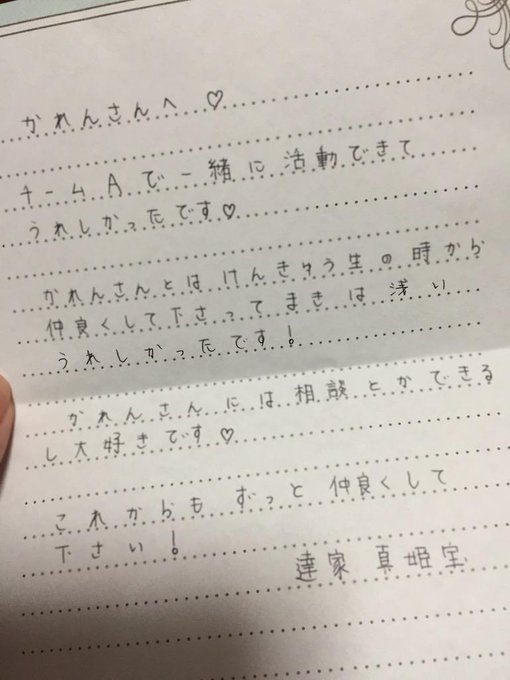 かれんさんへ♡
チームAで一緒に活動できて
うれしかったです♡
かれんさんとはけんきゅう生の時から
仲良くして下さってまきは浅い
うれしかったです!
かれんさんには相談とかできる
し大好きです♡
これからもずっと仲良くして
下さい!
達家真姫宝